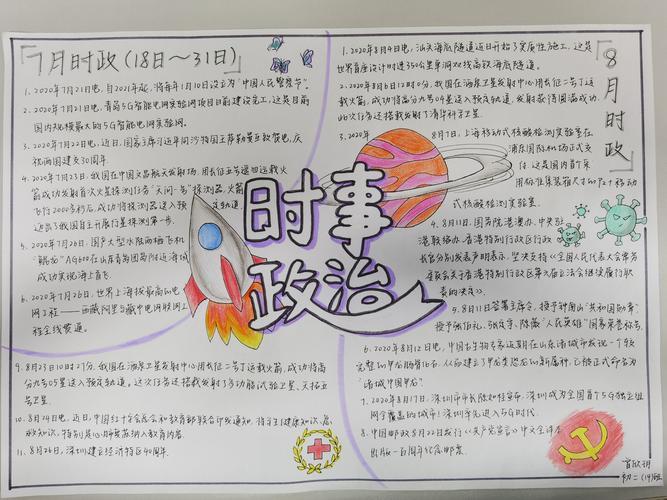 「7月时政(18日～31日)」
1. 2020年7月21日电，自2021年起，将每年1月10日设立为"中国人民警察节"。
2. 2020年7月21日电，青岛5G智能电网实验网项目目前建设完工，这是目前
国内规模最大的5G智能电网实验网。
3. 2020年7月22日电，近日，国家主席习近平同沙特国王萨勒曼互致贺电，庆
祝两国建交30周年。
4. 2020年7月23日，我国在中国文昌航天发射场，用长征五号遥四运载火
箭成功发射首次火星探测任务"天问一号"探测器，火箭
飞行2000多秒后，成功将探测器送入预定轨道，
迈出了我国自主开展行星探测第一步。
5. 2020年7月26日，国产大型水陆两栖飞机
"鲲龙"AG600在山东青岛团岛附近海域
成功实现海上首飞。
6. 2020年7月26日，世界上海拔最高的电
网工程——西藏阿里与藏中电网联网工
程全线贯通。
时事
政治
「8月时政」
1. 2020年8月4日电，汕头海底隧道近日开始了实质性施工，这是
世界首座设计时速350公里单洞双线高铁海底隧道。
2. 2020年8月6日12时0分，我国在酒泉卫星发射中心用长征二号丁运
载火箭，成功将高分九号04星送入预定轨道，发射获得圆满成功，
此次任务还搭载发射了清华科学卫星。
3. 2020年8月7日，上海移动式核酸检测实验室在
浦东国际机场正式交
付，这是国内首个采
用标准集装箱尺寸的P2+移动
式核酸检测实验室。
4. 8月11日，国务院港澳办、中央驻
港联络办、香港特别行政区行政
长官分别发表声明表示，坚决支持《全国人民代表大会常务
委员会关于香港特别行政区第六届立法会继续履行职
责的决定》。
5. 8月11日签署主席令，授予钟南山"共和国勋章"，
授予张伯礼、张定宇、陈薇"人民英雄"国家荣誉称号。
6. 2020年8月12日电，中国古生物专家近日在山东诸城市发现一个较
完整的甲龙
"诸城中国甲龙"。
7. 2020年8月17日，深圳市市长陈如桂宣布，深圳成为全国首个5G独立组
网全覆盖的城市，深圳率先进入5G时代。
8. 中国邮政8月22日发行《〈共产党宣言〉中文全译本
出版一百周年》纪念邮票。
9. 8月23日10时27分，我国在酒泉卫星发射中心用长征二号丁运载火箭，成功将高
分九号05星送入预定轨道，这次任务还搭载发射了多功能试验卫星、天拓五
号卫星。
10. 8月24日电，近日，中国红十字会总会和教育部联合印发通知，将学生健康知识、急
救知识，特别是心肺复苏纳入教育内容。
11. 8月26日，深圳建立经济特区40周年。
初二(19)班